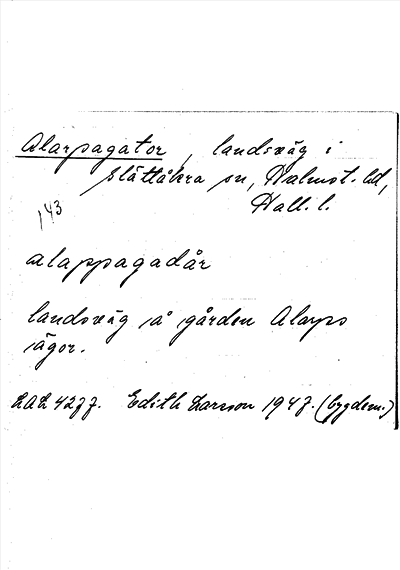 Alarpagator, landsväg i
Slättåkra sn, Halmst. hd,
Hall. l.
143
alappagadår
landsväg på gården Alarps
ägor.
LAL 4277. Edith Larsson 1947. (bygdem.)